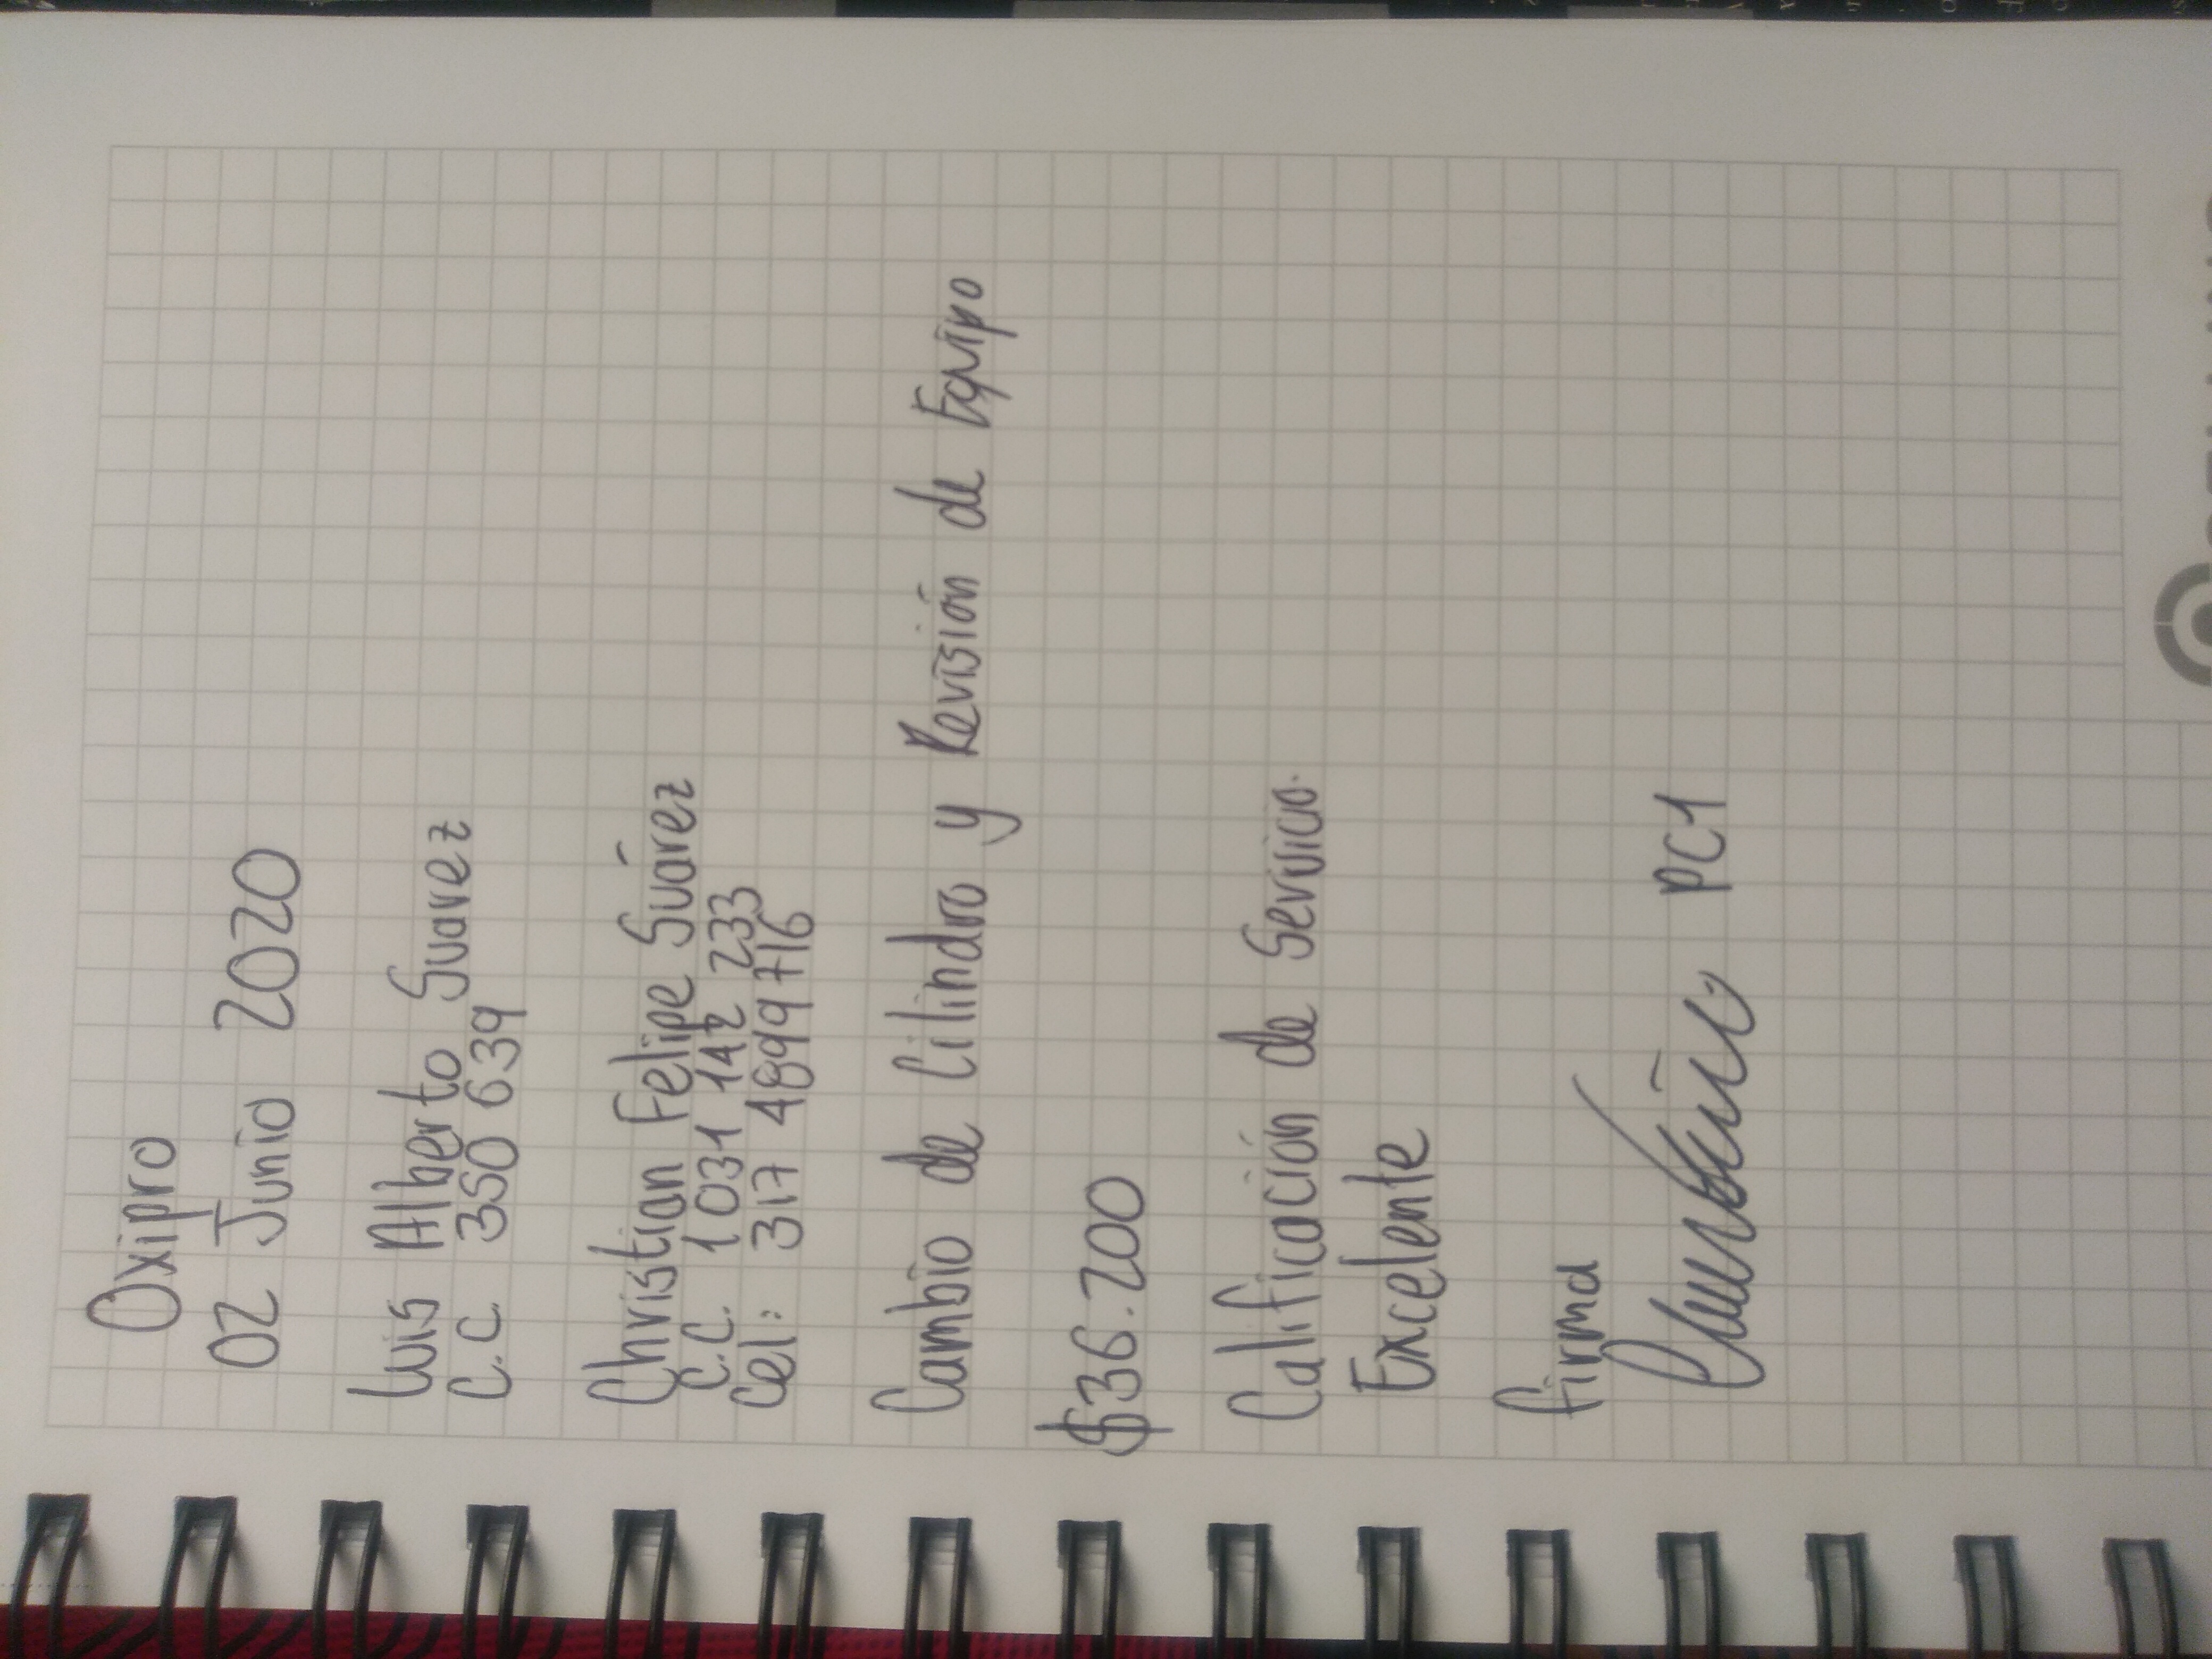 Oxipro
02 Junio 2020
Luis Alberto Suarez
C.C. 350 639
Christian Felipe Suárez
C.C. 1 031 142 233
Cel: 317 4899716
Cambio de Cilindro y Revisión de Equipo
$36.200
Calificación de Servicio.
Excelente
Firma
PC1